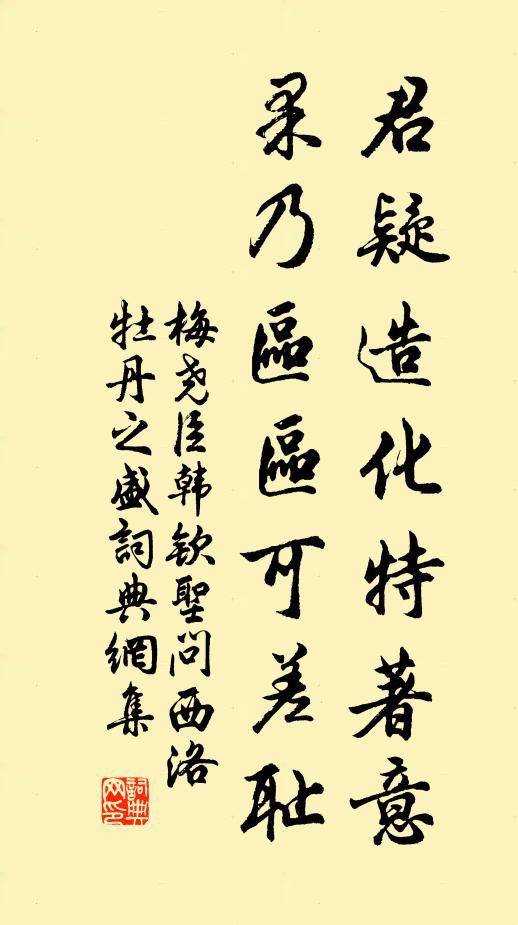 君疑造化特著意
果乃區區可羞耻
梅尧臣韩钦聖问西洛
牡丹之盛詞典網集
詞典网印